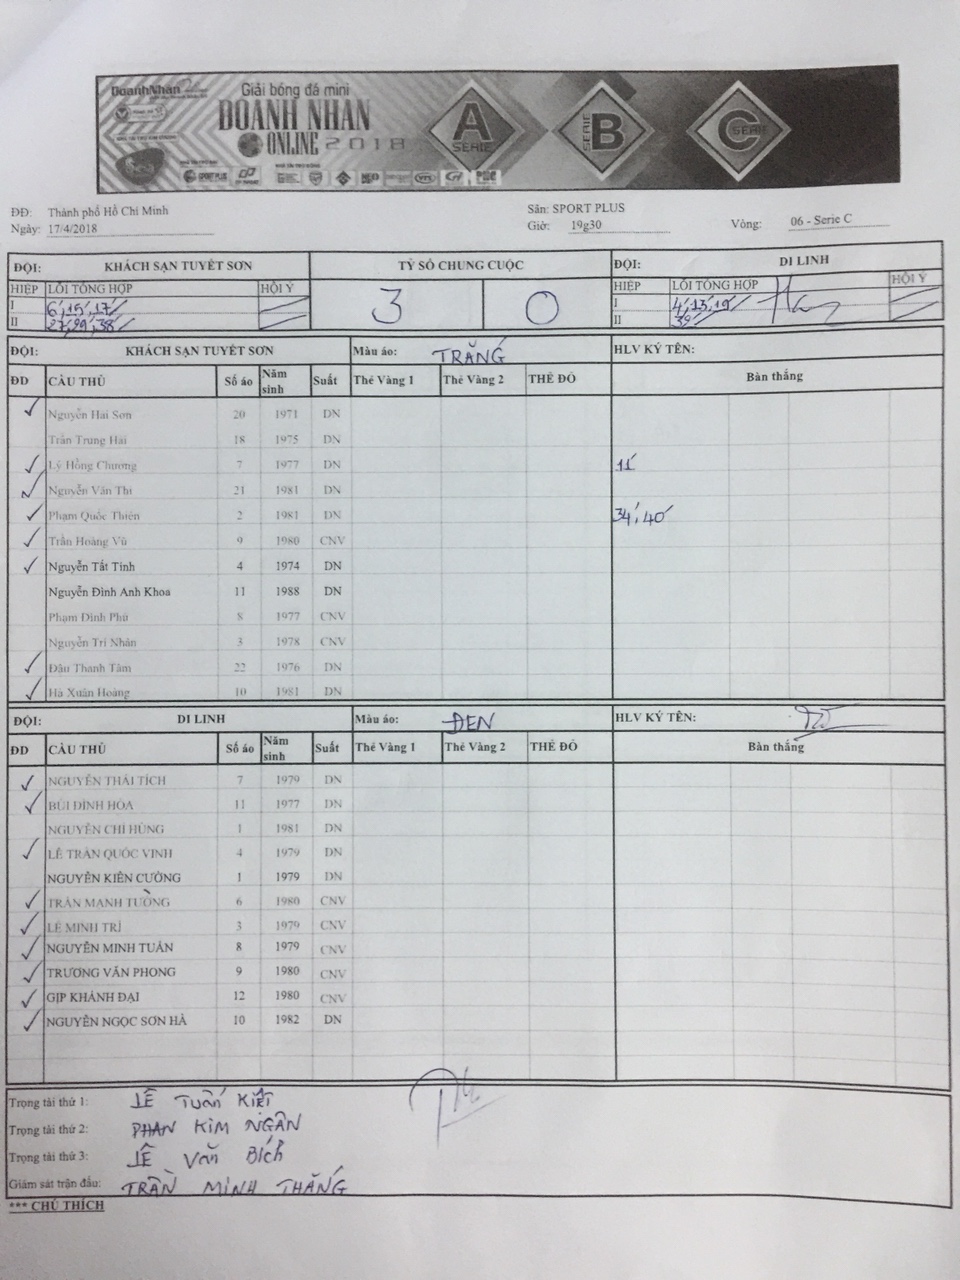 DoanhNhan
Giải bóng đá mini
DOANH NHAN
ONLINE 2018
A SERIE
SERIE B
C SERIE
SPORT PLUS
ĐĐ: Thành phố Hồ Chí Minh Sân: SPORT PLUS
Ngày: 17/4/2018 Giờ: 19g30 Vòng: 06 - Serie C
ĐỘI: KHÁCH SẠN TUYẾT SƠN TỶ SỐ CHUNG CUỘC ĐỘI: DI LINH
HIỆP LỖI TỔNG HỢP HỘI Ý 3 0 HIỆP LỖI TỔNG HỢP HỘI Ý
I 6', 15', 17' I 4', 13', 19'
II 27', 29', 38' II 39'
ĐỘI: KHÁCH SẠN TUYẾT SƠN Màu áo: TRẮNG HLV KÝ TÊN:
ĐD CẦU THỦ Số áo Năm sinh Suất Thẻ Vàng 1 Thẻ Vàng 2 THẺ ĐỎ Bàn thắng
✓ Nguyễn Hải Sơn 20 1971 DN
Trần Trung Hải 18 1975 DN
✓ Lý Hồng Chương 7 1977 DN 11'
✓ Nguyễn Văn Thi 21 1981 DN
✓ Phạm Quốc Thiên 2 1981 DN 34', 40'
✓ Trần Hoàng Vũ 9 1980 CNV
✓ Nguyễn Tất Tính 4 1974 DN
Nguyễn Đình Anh Khoa 11 1988 DN
Phạm Đình Phú 8 1977 CNV
Nguyễn Trí Nhân 3 1978 CNV
✓ Đậu Thanh Tâm 22 1976 DN
✓ Hà Xuân Hoàng 10 1981 DN
ĐỘI: DI LINH Màu áo: ĐEN HLV KÝ TÊN:
ĐD CẦU THỦ Số áo Năm sinh Suất Thẻ Vàng 1 Thẻ Vàng 2 THẺ ĐỎ Bàn thắng
✓ NGUYỄN THÁI TÍCH 7 1979 DN
✓ BÙI ĐÌNH HÒA 11 1977 DN
NGUYỄN CHÍ HÙNG 1 1981 DN
✓ LÊ TRẦN QUỐC VINH 4 1979 DN
NGUYỄN KIÊN CƯỜNG 1 1979 DN
✓ TRẦN MẠNH TƯỜNG 6 1980 CNV
✓ LÊ MINH TRÍ 3 1979 CNV
✓ NGUYỄN MINH TUẤN 8 1979 CNV
✓ TRƯƠNG VĂN PHONG 9 1980 CNV
✓ GỊP KHÁNH ĐẠI 12 1980 CNV
✓ NGUYỄN NGỌC SƠN HÀ 10 1982 DN
Trọng tài thứ 1: LÊ TUẤN KIỆT
Trọng tài thứ 2: PHAN KIM NGÂN
Trọng tài thứ 3: LÊ VĂN BÍCH
Giám sát trận đấu: TRẦN MINH THẮNG
*** CHÚ THÍCH